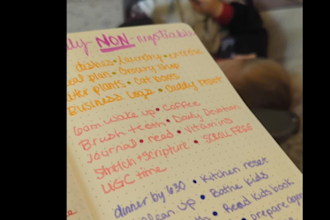 NON - negotiables
dishes • Laundry • exercise
meal plan • Grocery shop
water plants • Cat boxes
Business Logs • Daddy reset
6am wake up • Coffee
Brush teeth • Daily Devotion
Journal • read • Vitamins
Stretch + Scripture • SCROLL FREE
UGC time
dinner by 430 • Kitchen reset
clean up • Bathe Kids
Read Kids book
prepare